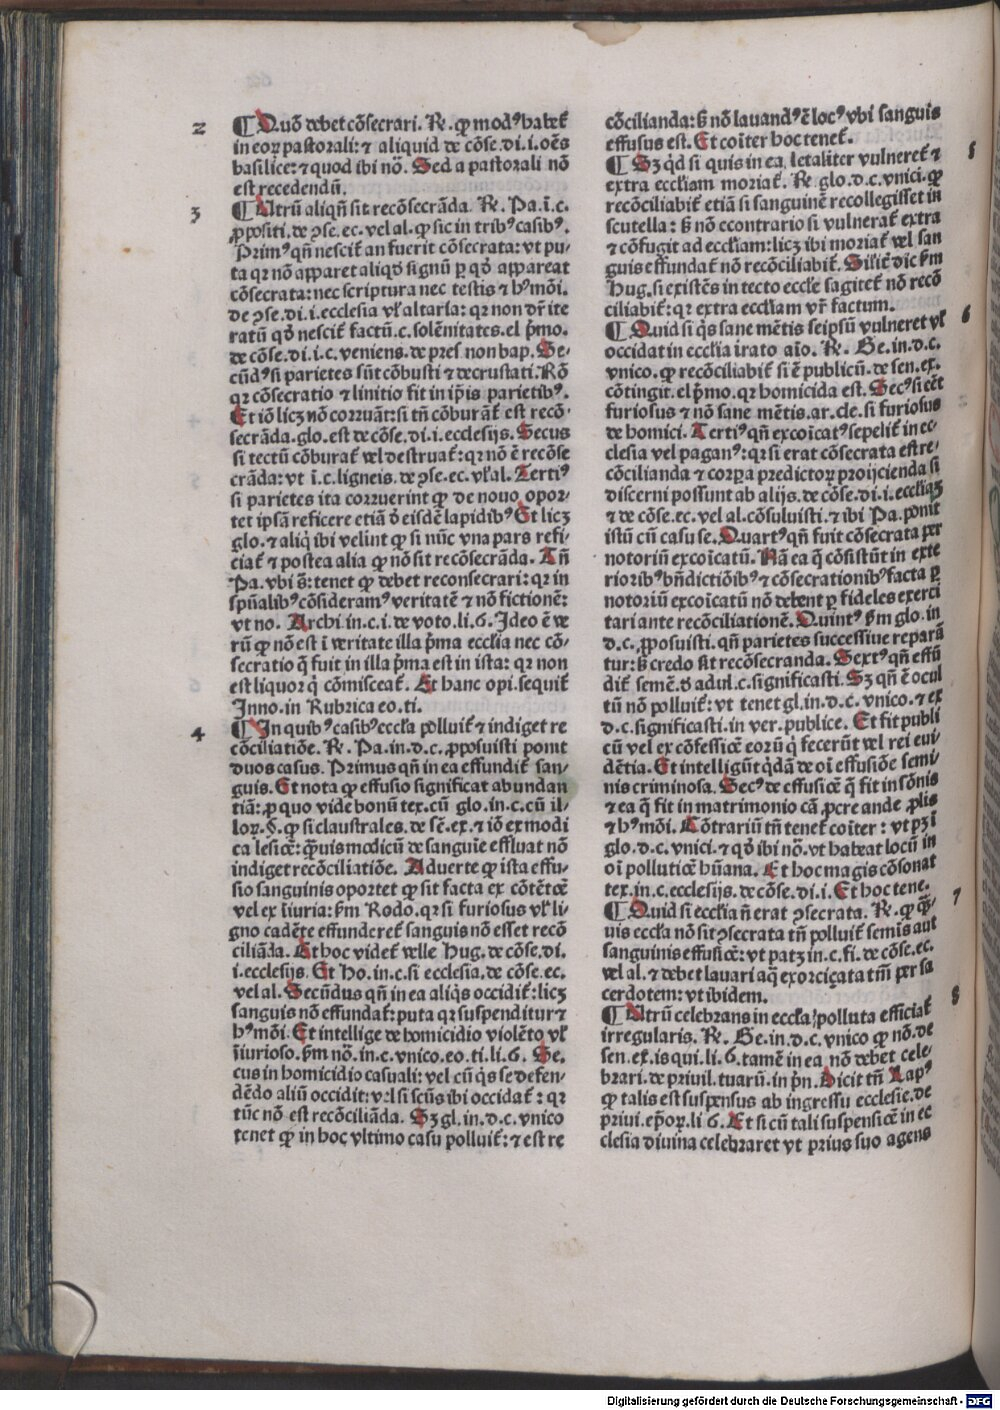 2 ¶ Quō debet cōsecrari. R̄. ꝙ modꝰ habet᷑
in eoꝝ pastorali: ⁊ aliquid de cōse. di. i. oēs
basilice: ⁊ quod ibi nō. Sed a pastorali nō
est recedendū.
3 ¶ Utrū aliqn̄ sit recōsecrāda. R̄. Pa. ī. c.
ꝓpositi. de ꝯse. ec. vel al. ꝙ sic in tribꝰ casibꝰ.
Primꝰ qn̄ nescit᷑ an fuerit cōsecrata: vt pu-
ta qꝛ nō apparet aliqḋ signū ꝑ qḋ appareat
cōsecrata: nec scriptura nec testis ⁊ hꝰmōi.
de ꝯse. di. i. ecclesia vl̓ altaria: qꝛ non dr̄ ite
ratū qḋ nescit᷑ factū. c. solēnitates. el p̄mo.
de cōse. di. i. c. veniens. de pres. non bap. Se-
cūdꝰ si parietes sūt cōbusti ⁊ decrustati. Rō
qꝛ cōsecratio ⁊ linitio fit in ip̄is parietibꝰ.
Et iō licꝫ nō corruāt: si tn̄ cōburāt᷑ est recō-
secrāda. glo. est de cōse. di. i. ecclesijs. Secus
si tectū cōburat᷑ vel destruat᷑: qꝛ nō ē recōse
crāda: vt ī. c. ligneis. de ꝯse. ec. vl̓ al. Tertiꝰ
si parietes ita corruerint ꝙ de nouo opor-
tet ipsā reficere etiā ð eisdē lapidibꝰ Et licꝫ
glo. ⁊ aliq̇ ibi velint ꝙ si nūc vna pars refi-
ciat᷑ ⁊ postea alia ꝙ nō sit recōsecrāda. Tn̄
Pa. vbi s̄: tenet ꝙ debet reconsecrari: qꝛ in
spūalibꝰ cōsideramꝰ veritatē ⁊ nō fictionē:
vt no. Archi. in. c. i. de voto. li. 6. Ideo ē ve
rū ꝙ nō est ī veritate illa p̄ma ecclīa nec cō-
secratio q̄ fuit in illa p̄ma est in ista: qꝛ non
est liquor q̇ cōmisceat᷑. Et hanc opi. sequit᷑
Inno. in Rubrica eo. ti.
4 ¶ In quibꝰ casibꝰ eccl̓a polluit᷑ ⁊ indiget re
cōciliatiōe. R̄. Pa. in. d. c. ꝓposuisti ponit
duos casus. Primus qn̄ in ea effundit᷑ san-
guis. Et nota ꝙ effusio significat abundan
tiā: pro quo vide bonū tex. cū glo. in. c. cū il-
loꝝ. §. ꝙ si claustrales. de sē. ex. ⁊ iō ex modi
ca lesiōe: q̄uis modicū de sanguie effluat nō
indiget recōciliatiōe. Aduerte ꝙ ista effu-
sio sanguinis oportet ꝙ sit facta ex cōtētōe
vel ex īiuria: ẜm Rodo. qꝛ si furiosus vl̓ li-
gno cadēte effunderet᷑ sanguis nō esset recō
ciliāda. Et hoc videt᷑ velle Hug. de cōse. di.
i. ecclesijs. Et Ho. in. c. si ecclesia. de cōse. ec.
vel al. Secūdus qn̄ in ea aliq̇s occidit᷑: licꝫ
sanguis nō effundat᷑: puta qꝛ suspenditur ⁊
hꝰmōi. Et intellige de homicidio violēto vl̓
īiurioso. ẜm nō. in. c. vnico. eo. ti. li. 6. Se-
cus in homicidio casuali: vel cū q̇s se defen-
dēdo aliū occidit: vel si scūs ibi occidat᷑: qꝛ
tūc nō est recōciliāda. Sꝫ gl. in. d. c. vnico
tenet ꝙ in hoc vltimo casu polluit᷑: ⁊ est re
cōcilianda: ẜ nō lauandꝰ ē locꝰ vbi sanguis
effusus est. Et coīter hoc tenet᷑.
5 ¶ Sꝫ q̇d si quis in ea letaliter vulneret᷑ ⁊
extra eccl̓iam moriat᷑. R̄. glo. d. c. vnici. ꝙ
recōciliabit᷑ etiā si sanguinē recollegisset in
scutella: ẜ nō econtrario si vulnerat᷑ extra
⁊ cōfugit ad eccl̓iam: licꝫ ibi moriat᷑ vel san
guis effundat᷑ nō recōciliabit᷑. Silīt᷑ dīc ẜm
Hug. si existēs in tecto eccl̓e sagitet᷑ nō recō
ciliabit᷑: qꝛ extra eccl̓iam vr̄ factum.
6 ¶ Quid si q̇s sane mētis seipsū vulneret vl̓
occidat in eccl̓ia irato aīo. R̄. Ge. in. d. c.
vnico. ꝙ recōciliabit᷑ si ē publicū. de sen. ex.
cōtingit. el p̄mo. qꝛ homicida est. Secꝰ si eēt
furiosus ⁊ nō sane mētis. ar. cle. si furiosus
de homici. Tertiꝰ qn̄ excoīcatꝰ sepelit᷑ in ec-
clesia vel paganꝰ: qꝛ si erat cōsecrata est re-
cōcilianda ⁊ corꝑa predictoꝝ proijcienda si
discerni possunt ab alijs. de cōse. di. i. eccl̓iaꝫ
⁊ de cōse. ec. vel al. cōsuluisti. ⁊ ibi Pa. ponit
istū cū casu se. Quartꝰ qn̄ fuit cōsecrata per
notoriū excoīcatū. Nā ea q̄ cōsistūt in exte
rioribꝰ bn̄dictiōibꝰ ⁊ cōsecrationibꝰ facta ꝑ
notoriū excoīcatū nō debent ꝑ fideles exerci
tari ante recōciliationē. Quintꝰ ẜm glo. in
d. c. ꝓposuisti. qn̄ parietes successiue reparā
tur: ẜ credo sit recōsecranda. Sextꝰ qn̄ effū
dit᷑ semē. ð adul. c. significasti. Sꝫ qn̄ ē ocul
tū nō polluit᷑: vt tenet gl. in. d. c. vnico. ⁊ ex
d. c. significasti. in ver. publice. Et fit publi
cū vel ex cōfessiōe eorū q̇ fecerūt vel rei eui-
dētia. Et intelligūt q̇dā de oī effusiōe semi-
nis criminosa. Secꝰ de effusiōe q̄ fit in sōnis
⁊ ea q̄ fit in matrimonio cā ꝓcreande ꝓlis
⁊ hꝰmōi. Cōtrariū tn̄ tenet᷑ coīter: vt pꝫ ī
glo. d. c. vnici. ⁊ qḋ ibi nō. vt habeat locū in
oī pollutiōe hūana. Et hoc magis cōsonat
tex. in. c. ecclesijs. de cōse. di. i. Et hoc tene.
7 ¶ Quid si eccl̓ia n̄ erat ꝯsecrata. R̄. ꝙ q̄-
uis eccl̓a nō sit ꝯsecrata tn̄ polluit᷑ semīs aut
sanguinis effusiōe: vt patꝫ in. c. fi. de cōse. ec.
vel al. ⁊ debet lauari aq̄ exorcizata tm̄ per sa
cerdotem: vt ibidem.
8 ¶ Utrū celebrans in eccl̓ia polluta efficiat᷑
irregularis. R̄. Ge. in. d. c. vnico ꝙ nō. de
sen. ex. is qui. li. 6. tamē in ea nō debet cele-
brari. de priuil. tuarū. in pn̄. Dicit tn̄ Lapꝰ
ꝙ talis est suspensus ab ingressu ecclesie. de
priui. ep̄oꝝ. li 6. Et si cū tali suspensiōe in ec
clesia diuina celebraret vt prius suo agens
Digitalisierung gefördert durch die Deutsche Forschungsgemeinschaft - DFG